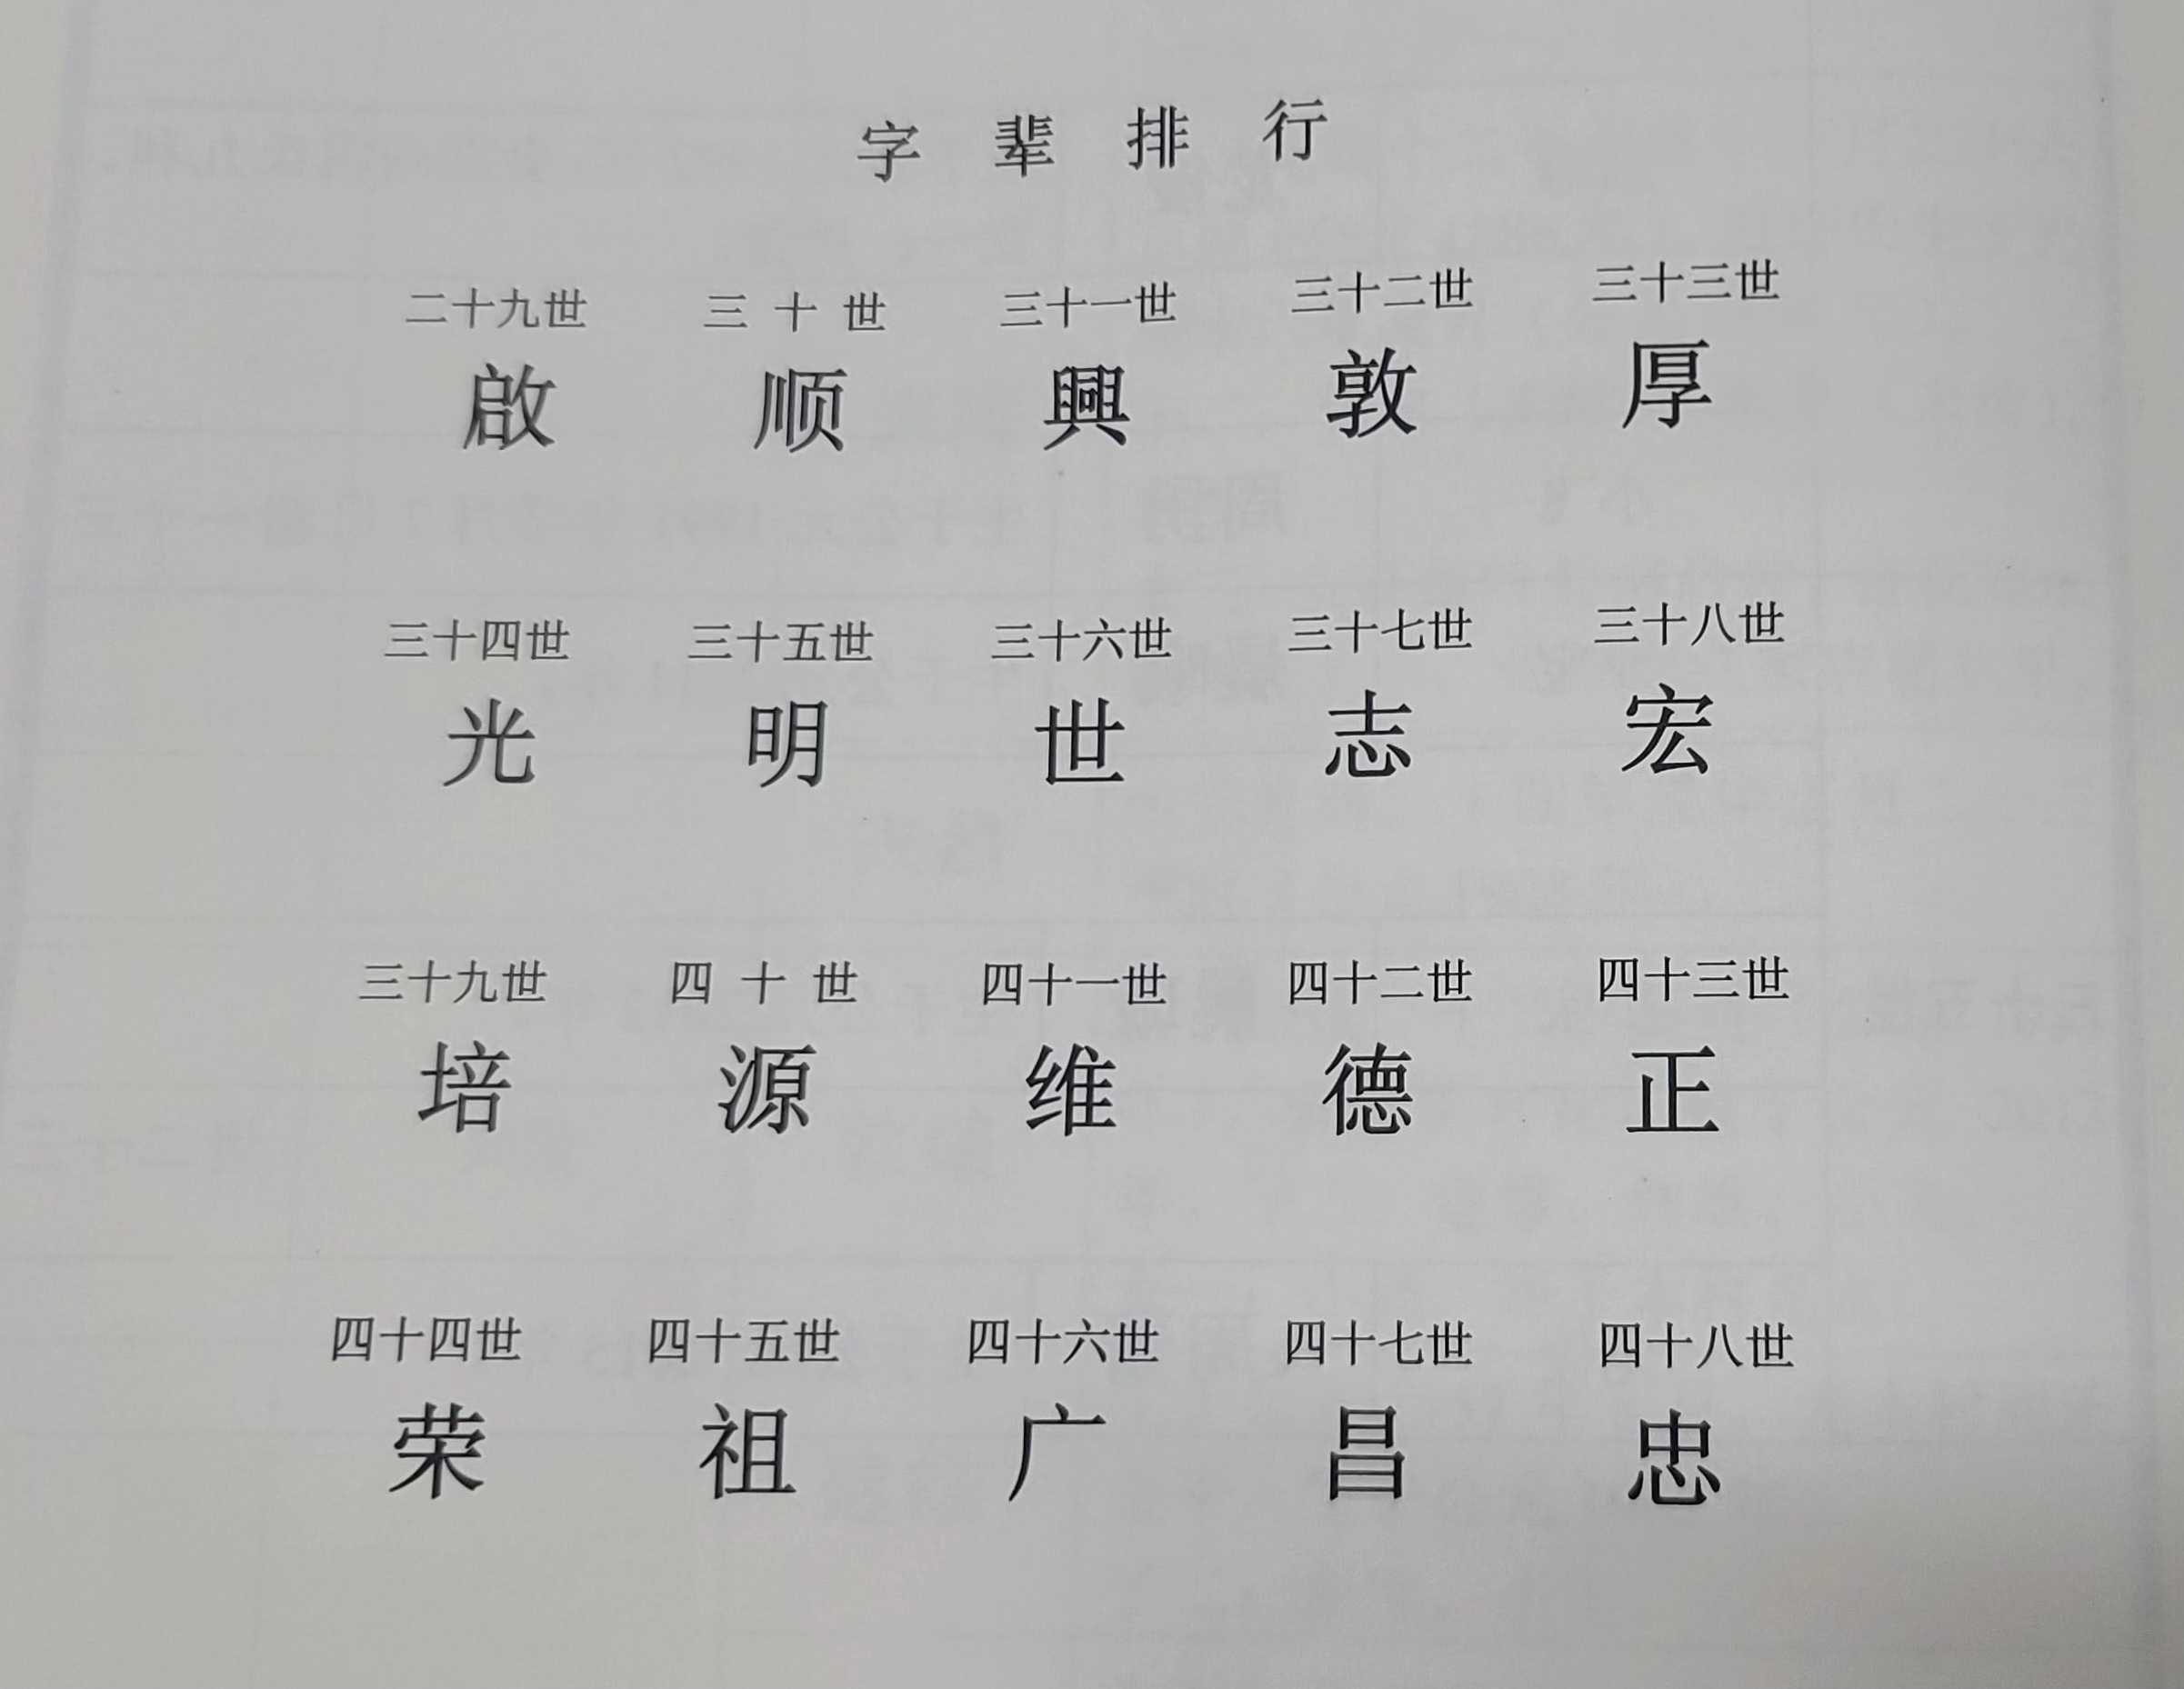 字辈排行
二十九世 三十世 三十一世 三十二世 三十三世
啟 顺 興 敦 厚
三十四世 三十五世 三十六世 三十七世 三十八世
光 明 世 志 宏
三十九世 四十世 四十一世 四十二世 四十三世
培 源 维 德 正
四十四世 四十五世 四十六世 四十七世 四十八世
荣 祖 广 昌 忠